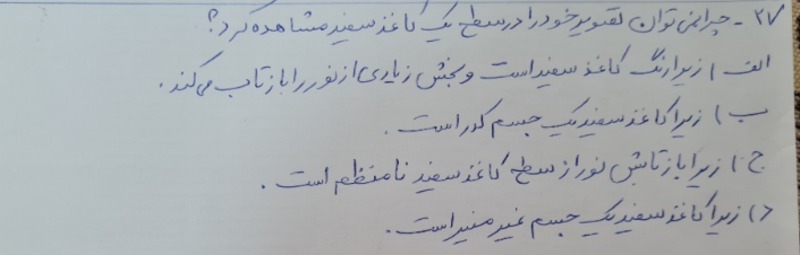 ۲۷ - چرا نمی توان تصویر خود را در سطح یک کاغذ سفید مشاهده کرد؟
الف) زیرا رنگ کاغذ سفید است و بخش زیادی از نور را باز تاب می کند.
ب) زیرا کاغذ سفید یک جسم کدر است.
ج) زیرا باز تابش نور از سطح کاغذ سفید نامنظم است.
د) زیرا کاغذ سفید یک جسم غیر منیر است.